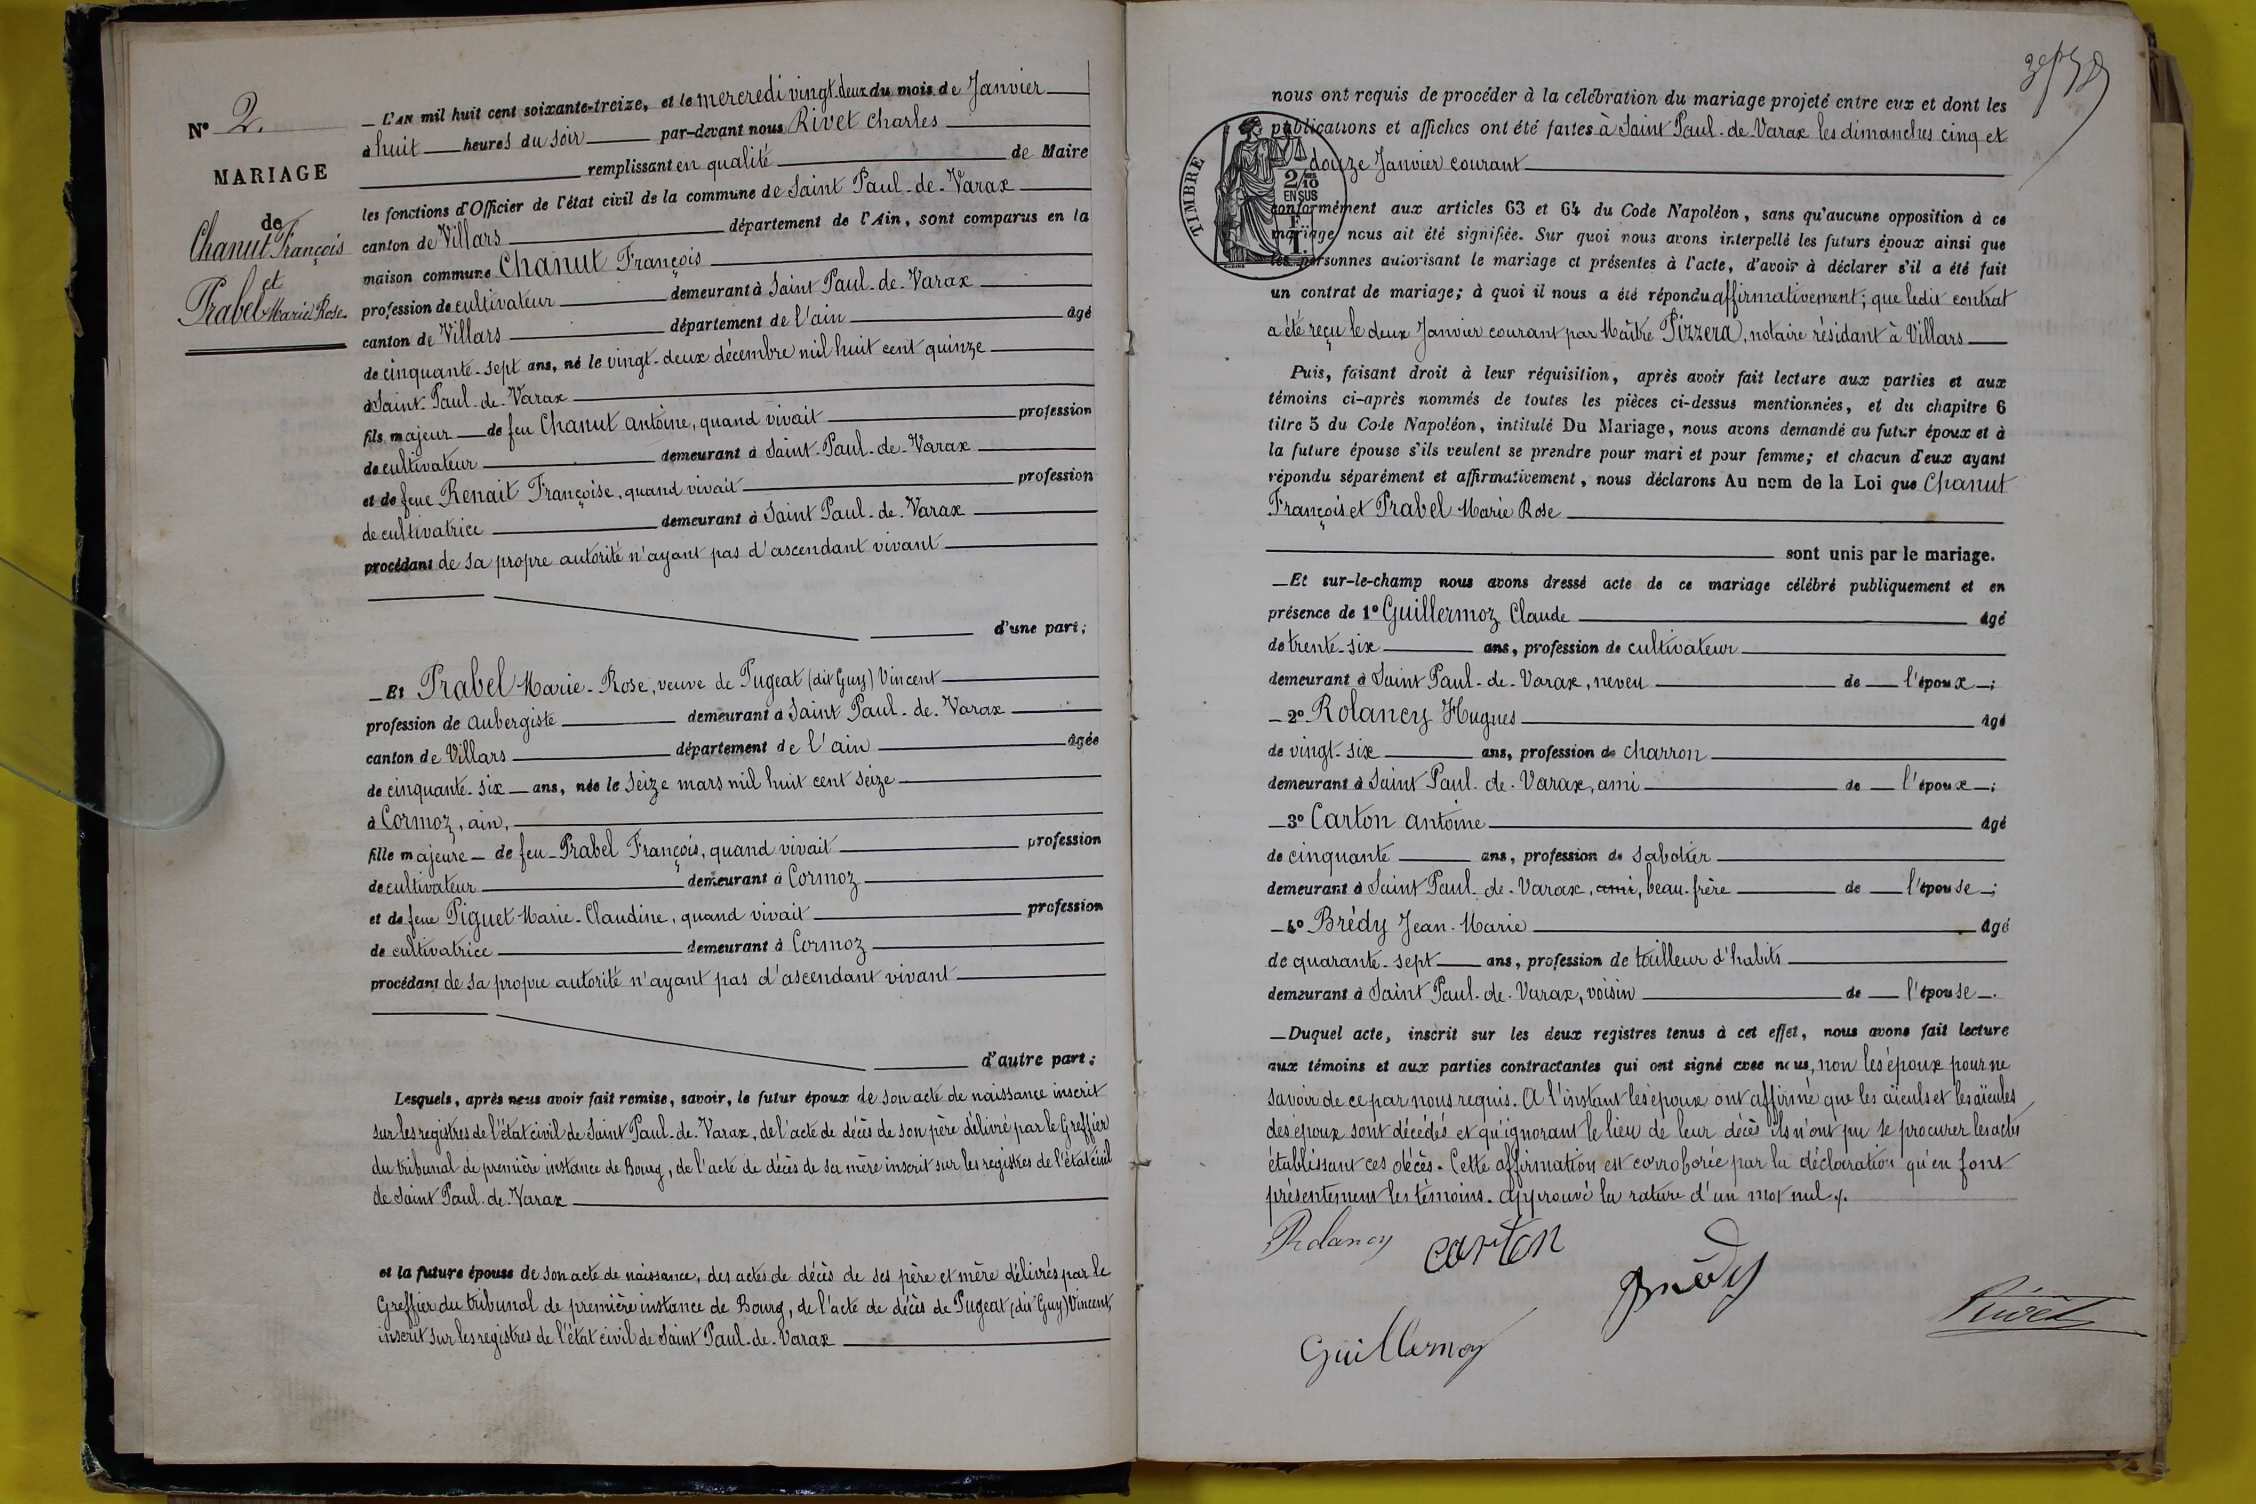 N° 2.
MARIAGE
de
Chanut François
et
Prabel Marie Rose
L'AN mil huit cent soixante-treize, et le mercredi vingt-deux du mois de Janvier
à huit heures du soir par-devant nous Rivet Charles
remplissant en qualité de Maire
les fonctions d'Officier de l'état civil de la commune de Saint Paul-de-Varax
canton de Villars département de l'Ain, sont comparus en la
maison commune Chanut François
profession de cultivateur demeurant à Saint Paul-de-Varax
canton de Villars département de l'ain âgé
de cinquante-sept ans, né le vingt-deux décembre mil huit cent quinze
à Saint-Paul-de-Varax
fils majeur de feu Chanut antoine, quand vivait profession
de cultivateur demeurant à Saint-Paul-de-Varax
et de feue Renait Françoise, quand vivait profession
de cultivatrice demeurant à Saint Paul-de-Varax
procédant de sa propre autorité n'ayant pas d'ascendant vivant
d'une part;
Et Prabel Marie-Rose, veuve de Pugeat (dit Guy) Vincent
profession de aubergiste demeurant à Saint Paul-de-Varax
canton de Villars département de l'ain âgée
de cinquante-six ans, née le seize mars mil huit cent seize
à Cormoz, ain,
fille majeure de feu Prabel François, quand vivait profession
de cultivateur demeurant à Cormoz
et de feue Piguet Marie-Claudine, quand vivait profession
de cultivatrice demeurant à Cormoz
procédant de sa propre autorité n'ayant pas d'ascendant vivant
d'autre part;
Lesquels, après nous avoir fait remise, savoir, le futur époux de son acte de naissance inscrit
sur les registres de l'état civil de Saint Paul-de-Varax, de l'acte de décès de son père délivré par le Greffier
du tribunal de première instance de Bourg, de l'acte de décès de sa mère inscrit sur les registres de l'état civil
de Saint Paul-de-Varax
et la future épouse de son acte de naissance, des actes de décès de ses père et mère délivrés par le
Greffier du tribunal de première instance de Bourg, de l'acte de décès de Pugeat (dit Guy) Vincent,
inscrit sur les registres de l'état civil de Saint Paul-de-Varax
nous ont requis de procéder à la célébration du mariage projeté entre eux et dont les
publications et affiches ont été faites à Saint Paul-de-Varax les dimanches cinq et
douze Janvier courant
TIMBRE
2/10
EN SUS
conformément aux articles 63 et 64 du Code Napoléon, sans qu'aucune opposition à ce
mariage nous ait été signifiée. Sur quoi nous avons interpellé les futurs époux ainsi que
les personnes autorisant le mariage et présentes à l'acte, d'avoir à déclarer s'il a été fait
un contrat de mariage; à quoi il nous a été répondu affirmativement; que ledit contrat
a été reçu le deux Janvier courant par Maître Pizzera, notaire résidant à Villars
Puis, faisant droit à leur réquisition, après avoir fait lecture aux parties et aux
témoins ci-après nommés de toutes les pièces ci-dessus mentionnées, et du chapitre 6
titre 5 du Code Napoléon, intitulé Du Mariage, nous avons demandé au futur époux et à
la future épouse s'ils veulent se prendre pour mari et pour femme; et chacun d'eux ayant
répondu séparément et affirmativement, nous déclarons Au nom de la Loi que Chanut
François et Prabel Marie Rose
sont unis par le mariage.
Et sur-le-champ nous avons dressé acte de ce mariage célébré publiquement et en
présence de 1° Guillermoz Claude âgé
de trente-six ans, profession de cultivateur
demeurant à Saint Paul-de-Varax, neveu de l'époux;
2° Rolancy Hugues âgé
de vingt-six ans, profession de charron
demeurant à Saint Paul-de-Varax, ami de l'époux;
3° Carton antoine âgé
de cinquante ans, profession de sabotier
demeurant à Saint Paul-de-Varax, ami, beau-frère de l'épouse;
4° Brédy Jean-Marie âgé
de quarante-sept ans, profession de tailleur d'habits
demeurant à Saint Paul-de-Varax, voisin de l'épouse.
Duquel acte, inscrit sur les deux registres tenus à cet effet, nous avons fait lecture
aux témoins et aux parties contractantes qui ont signé avec nous, non les époux pour ne
savoir de ce par nous requis. A l'instant les époux ont affirmé que les aïeuls et les aïeules
des époux sont décédés et qu'ignorant le lieu de leur décès ils n'ont pu se procurer les actes
établissant ces décès. Cette affirmation est corroborée par la déclaration qu'en font
présentement les témoins. approuvé la rature d'un mot nul.
Rolancy carton
Brédy
Rivet
Guillermoz